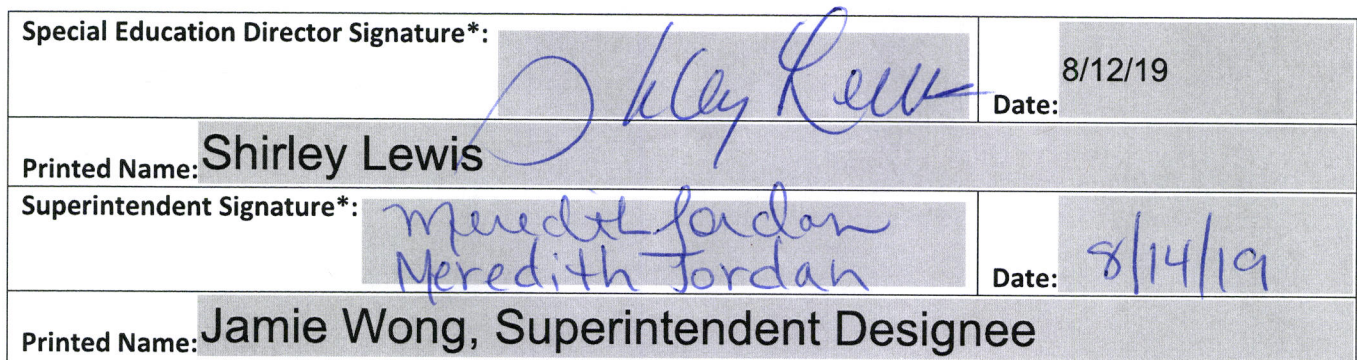 Special Education Director Signature*: Shirley Lewis
Date: 8/12/19
Printed Name: Shirley Lewis
Superintendent Signature*: Meredith Jordan
Meredith Jordan
Date: 8/14/19
Printed Name: Jamie Wong, Superintendent Designee